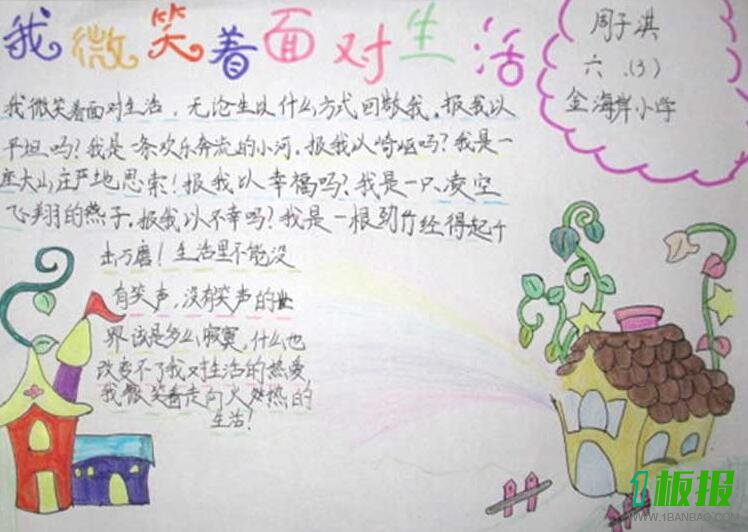 我微笑着面对生活
周子淇
六.(3)
金海岸小学
我微笑着面对生活,无论生以什么方式回敬我.报我以
平坦吗?我是一条欢乐奔流的小河.报我以崎岖吗?我是一
座大山庄严地思索!报我以幸福吗?我是一只凌空
飞翔的燕子.报我以不幸吗?我是一根劲竹经得起千
击万磨!生活里不能没
有笑声,没有笑声的世
界该是多么寂寞,什么也
改变不了我对生活的热爱
我微笑着走向火热的
生活!
1板报
WWW.1BANBAO.COM